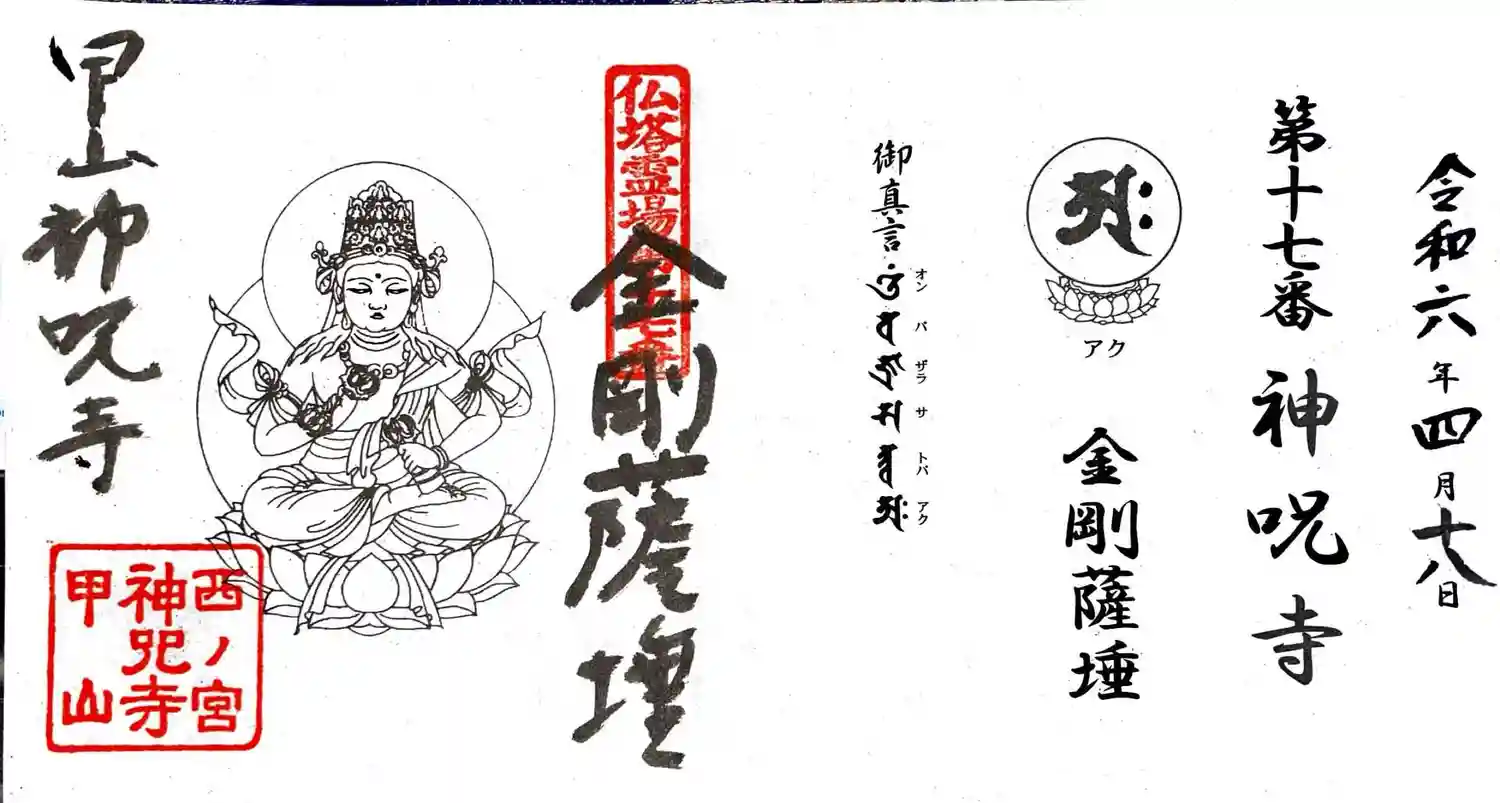 令和六年四月十八日
第十七番 神呪寺
アク
金剛薩埵
御真言
オン バ ザラ サ トバ アク
仏塔霊場第十七番
金剛薩埵
甲山神呪寺
西ノ宮
神呪寺
甲山